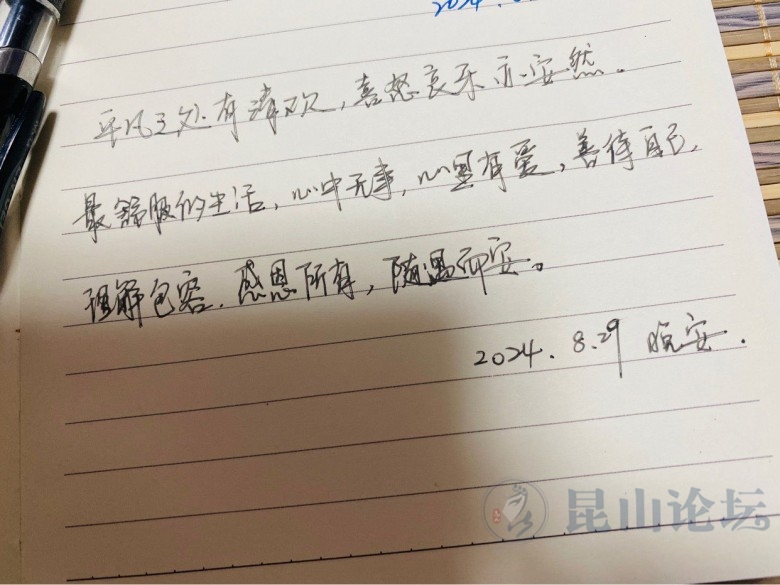 2024.
平凡之处有清欢，喜怒哀乐亦安然。
最舒服的生活，心中无事，心里有爱，善待自己，
理解包容，感恩所有，随遇而安。
2024.8.29 晚安.
昆山论坛